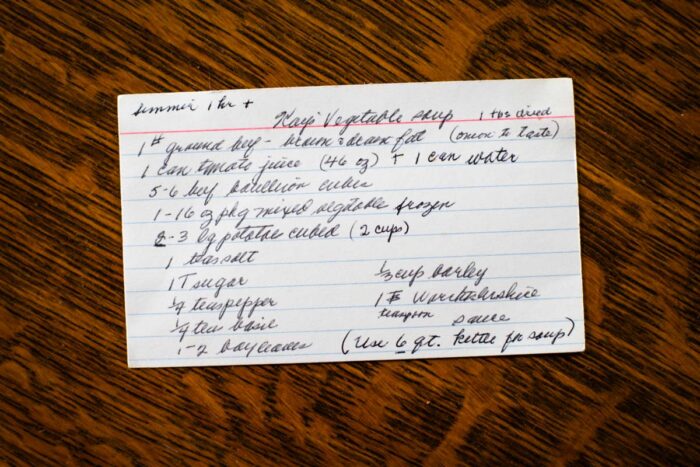 Simmer 1 hr +
Kay's Vegetable soup 1 tbs dried
1# ground beef - brown & drain fat (onion to taste)
1 can tomato juice (46 oz) + 1 can water
5-6 beef bouillion cubes
1-16 oz pkg mixed vegetables frozen
2-3 lg potatoes cubed (2 cups)
1 teas salt
1 T sugar 1/3 cup barley
1/4 teas pepper 1 T Worchtershire
1/4 tea basil teaspoon sauce
1-2 bay leaves (Use 6 qt. kettle for soup)